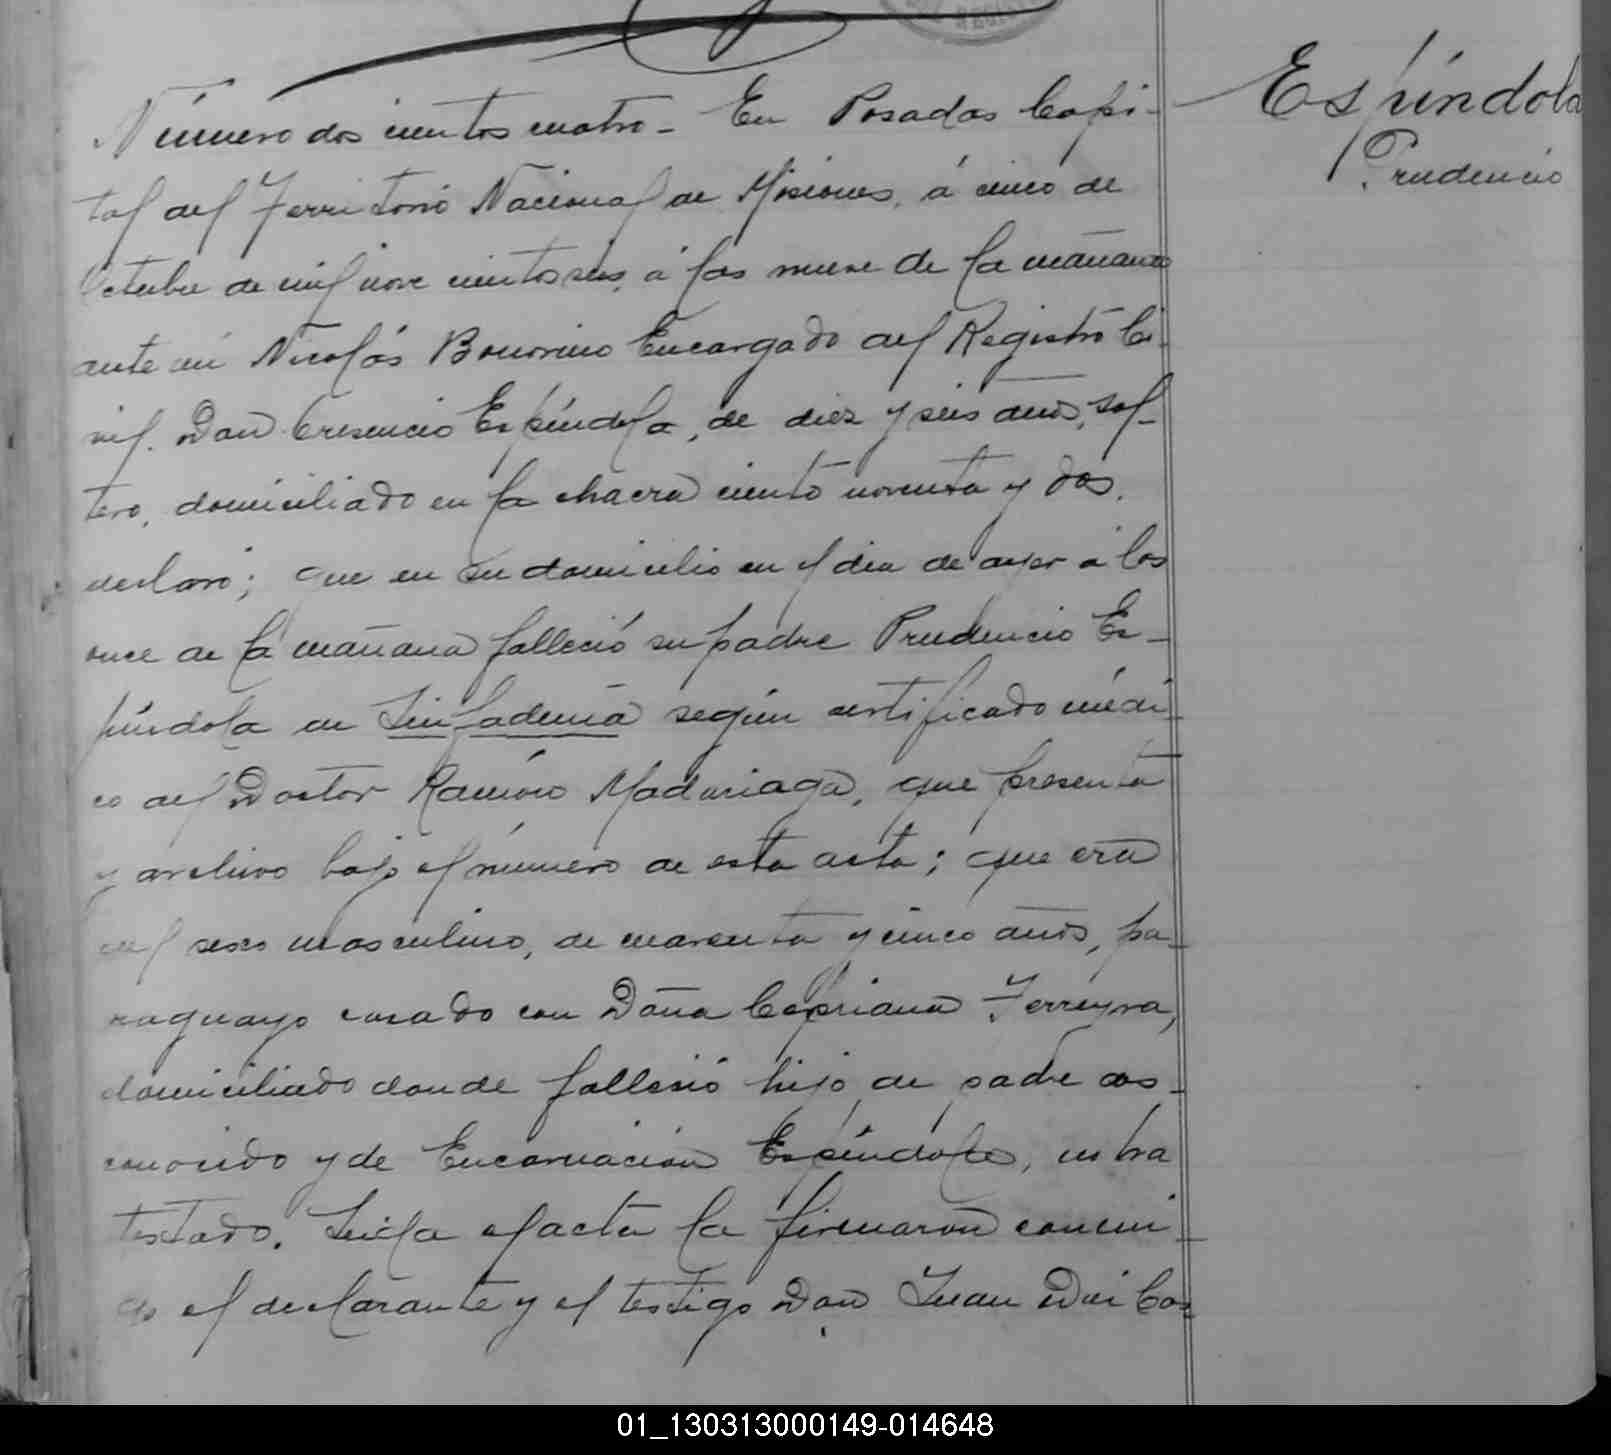 Número dos cientos cuatro - En Posadas Capi-
tal del Territorio Nacional de Misiones, á cinco de
Octubre de mil nove cientos seis, á las nueve de la mañana
ante mi Nicolás Bouorino Encargado del Registro Ci-
vil. Don Cresencio Espíndola, de diez y seis años, sol-
tero, domiciliado en la chacra ciento noventa y dos,
declaró; que en su domicilio en el dia de ayer á las
once de la mañana falleció su padre Prudencio Es-
píndola en Linfademia según certificado médi-
co del Doctor Ramón Madariaga, que presenta
y archivo bajo el número de esta acta; que era
del sexo masculino, de cuarenta y cinco años, pa-
raguayo casado con Doña Cipriana Ferreyra,
domiciliado donde falleció hijo de padre des-
conocido y de Encarnación Espíndola, no ha
testado. Leida el acta la firmaron conmi-
go el declarante y el testigo Don Juan Dui Cos
Espíndola
Prudencio
01_130313000149-014648